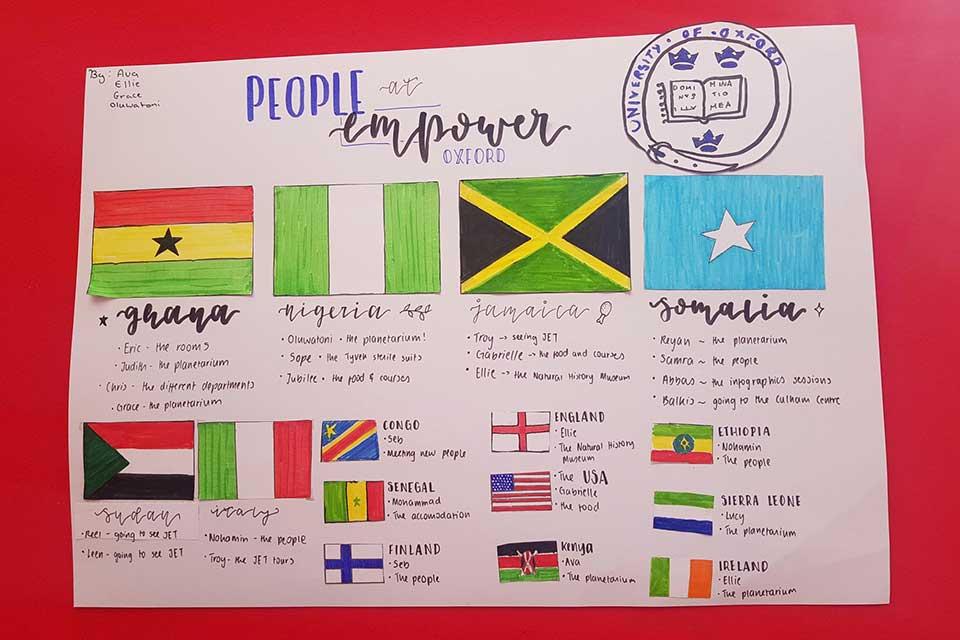 By: Ava
Ellie
Grace
Oluwatoni
PEOPLE at
empower
OXFORD
UNIVERSITY · OF · OXFORD
DOMI MINA
NVS TIO
ILLV MEA
ghana
• Eric - the rooms
• Judith - the planetarium
• Chris - the different departments
• Grace - the planetarium
nigeria
• Oluwatoni • the planetarium!
• Sope • the Tyvek sterile suits
• Jubilee • the food & courses
jamaica
• Troy → seeing JET
• Gabrielle → the food and courses
• Ellie → the Natural History Museum
somalia
• Reyan ~ the planetarium
• Samra ~ the people
• Abbas ~ the infographics sessions
• Balkis ~ going to the Culham Centre
sudan
• Reel - going to see JET
• Leen - going to see JET
italy
• Nohamin - the people
• Troy - the JET tours
CONGO
• Seb
• Meeting new people
SENEGAL
• Mohammad
• The accomodation
FINLAND
• Seb
• The people
ENGLAND
• Ellie
• The Natural History
Museum
• The USA
• Gabrielle
• the food
Kenya
• Ava
• The planetarium
ETHIOPIA
• Nohamin
• The people
SIERRA LEONE
• Lucy
• The planetarium
IRELAND
• Ellie
• The planetarium